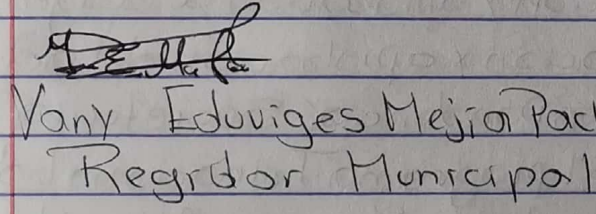 Yany Eduviges Mejia Pac
Regidor Municipal